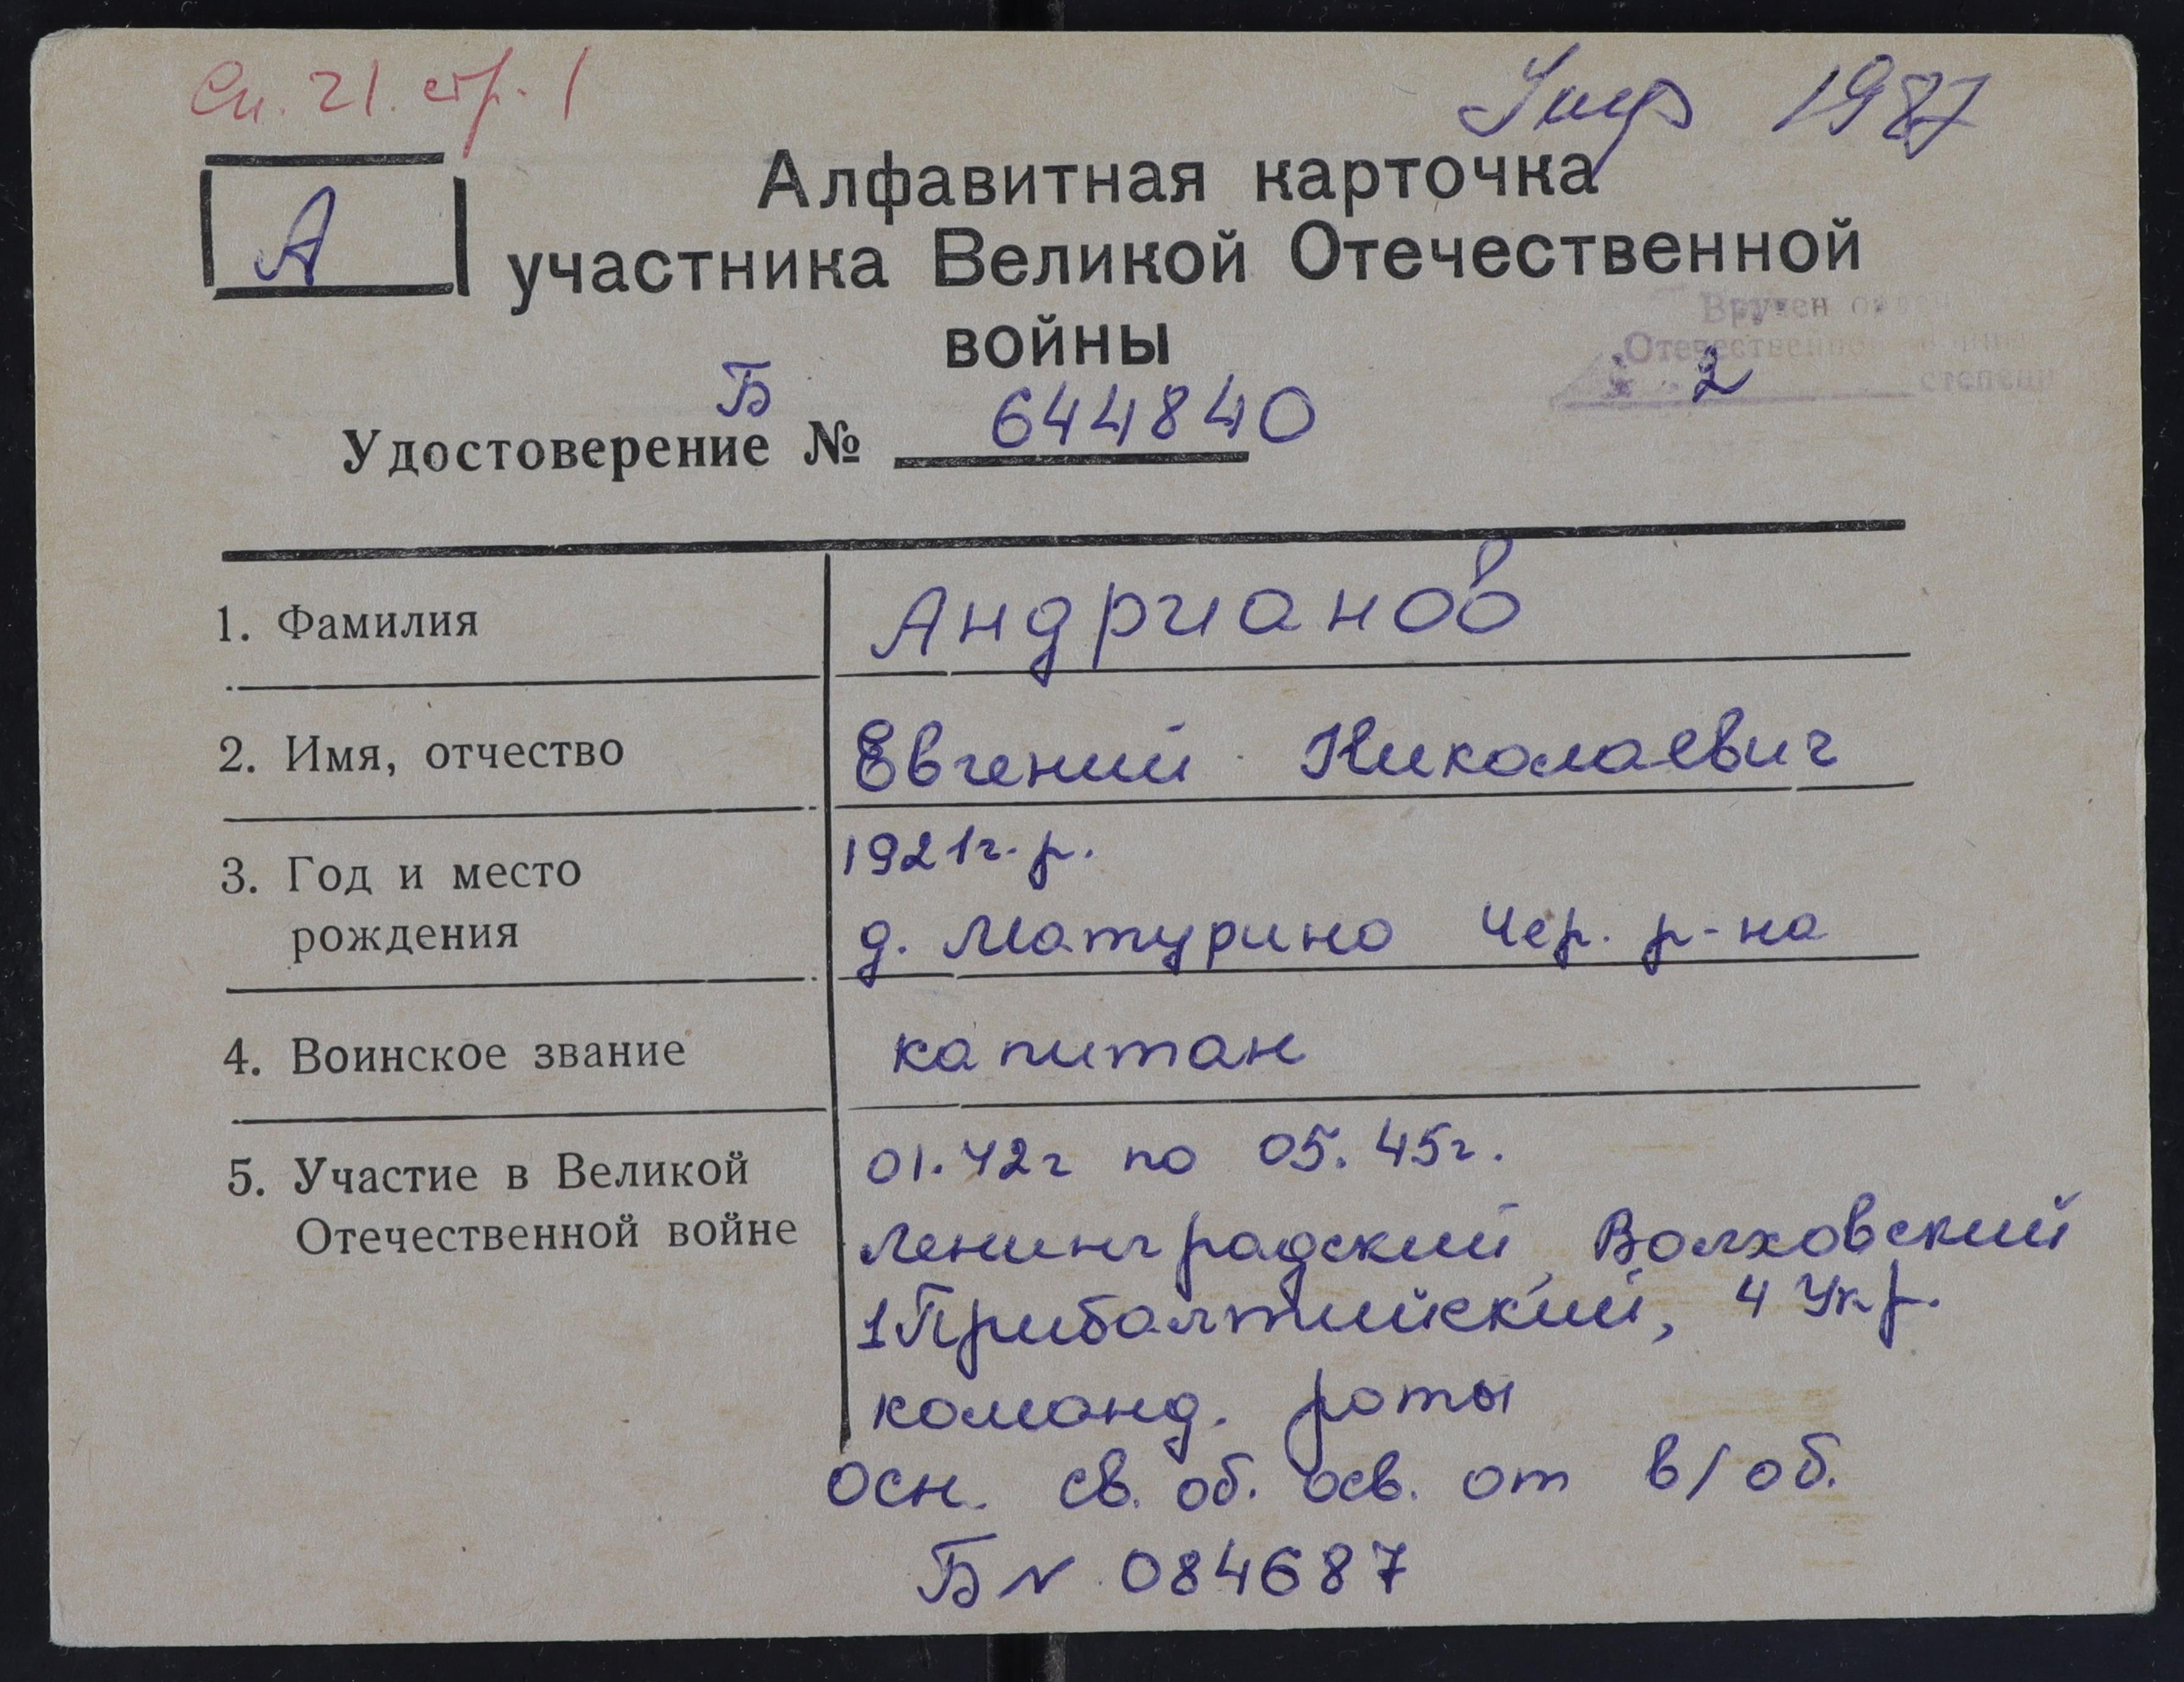 Сп. 21. стр. 1
Умер 1987
А
Алфавитная карточка
участника Великой Отечественной
войны
Вручен орден
Отечественной войны
2 степени
Б
Удостоверение № 644840
1. Фамилия Андрианов
2. Имя, отчество Евгений Николаевич
3. Год и место 1921г.р.
рождения д. Матурино Чер. р-на
4. Воинское звание капитан
5. Участие в Великой 01.42г по 05.45г.
Отечественной войне Ленинградский, Волховский
1Прибалтийский, 4 Укр.
команд. роты
Осн. св. об. осв. от в/об.
Б№ 084687